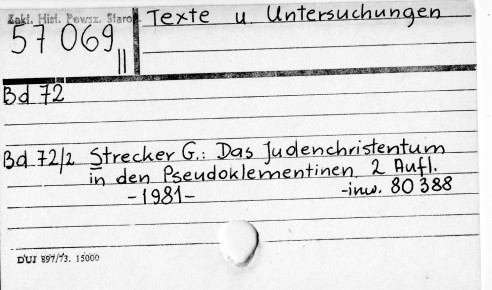 Zakł. Hist. Powsz. Staroż.
57 069 II
Texte u. Untersuchungen
Bd 72
Bd 72/2 Strecker G.: Das Judenchristentum
in den Pseudoklementinen 2 Aufl.
-1981- -inw. 80 388
DUJ 897/73. 15000